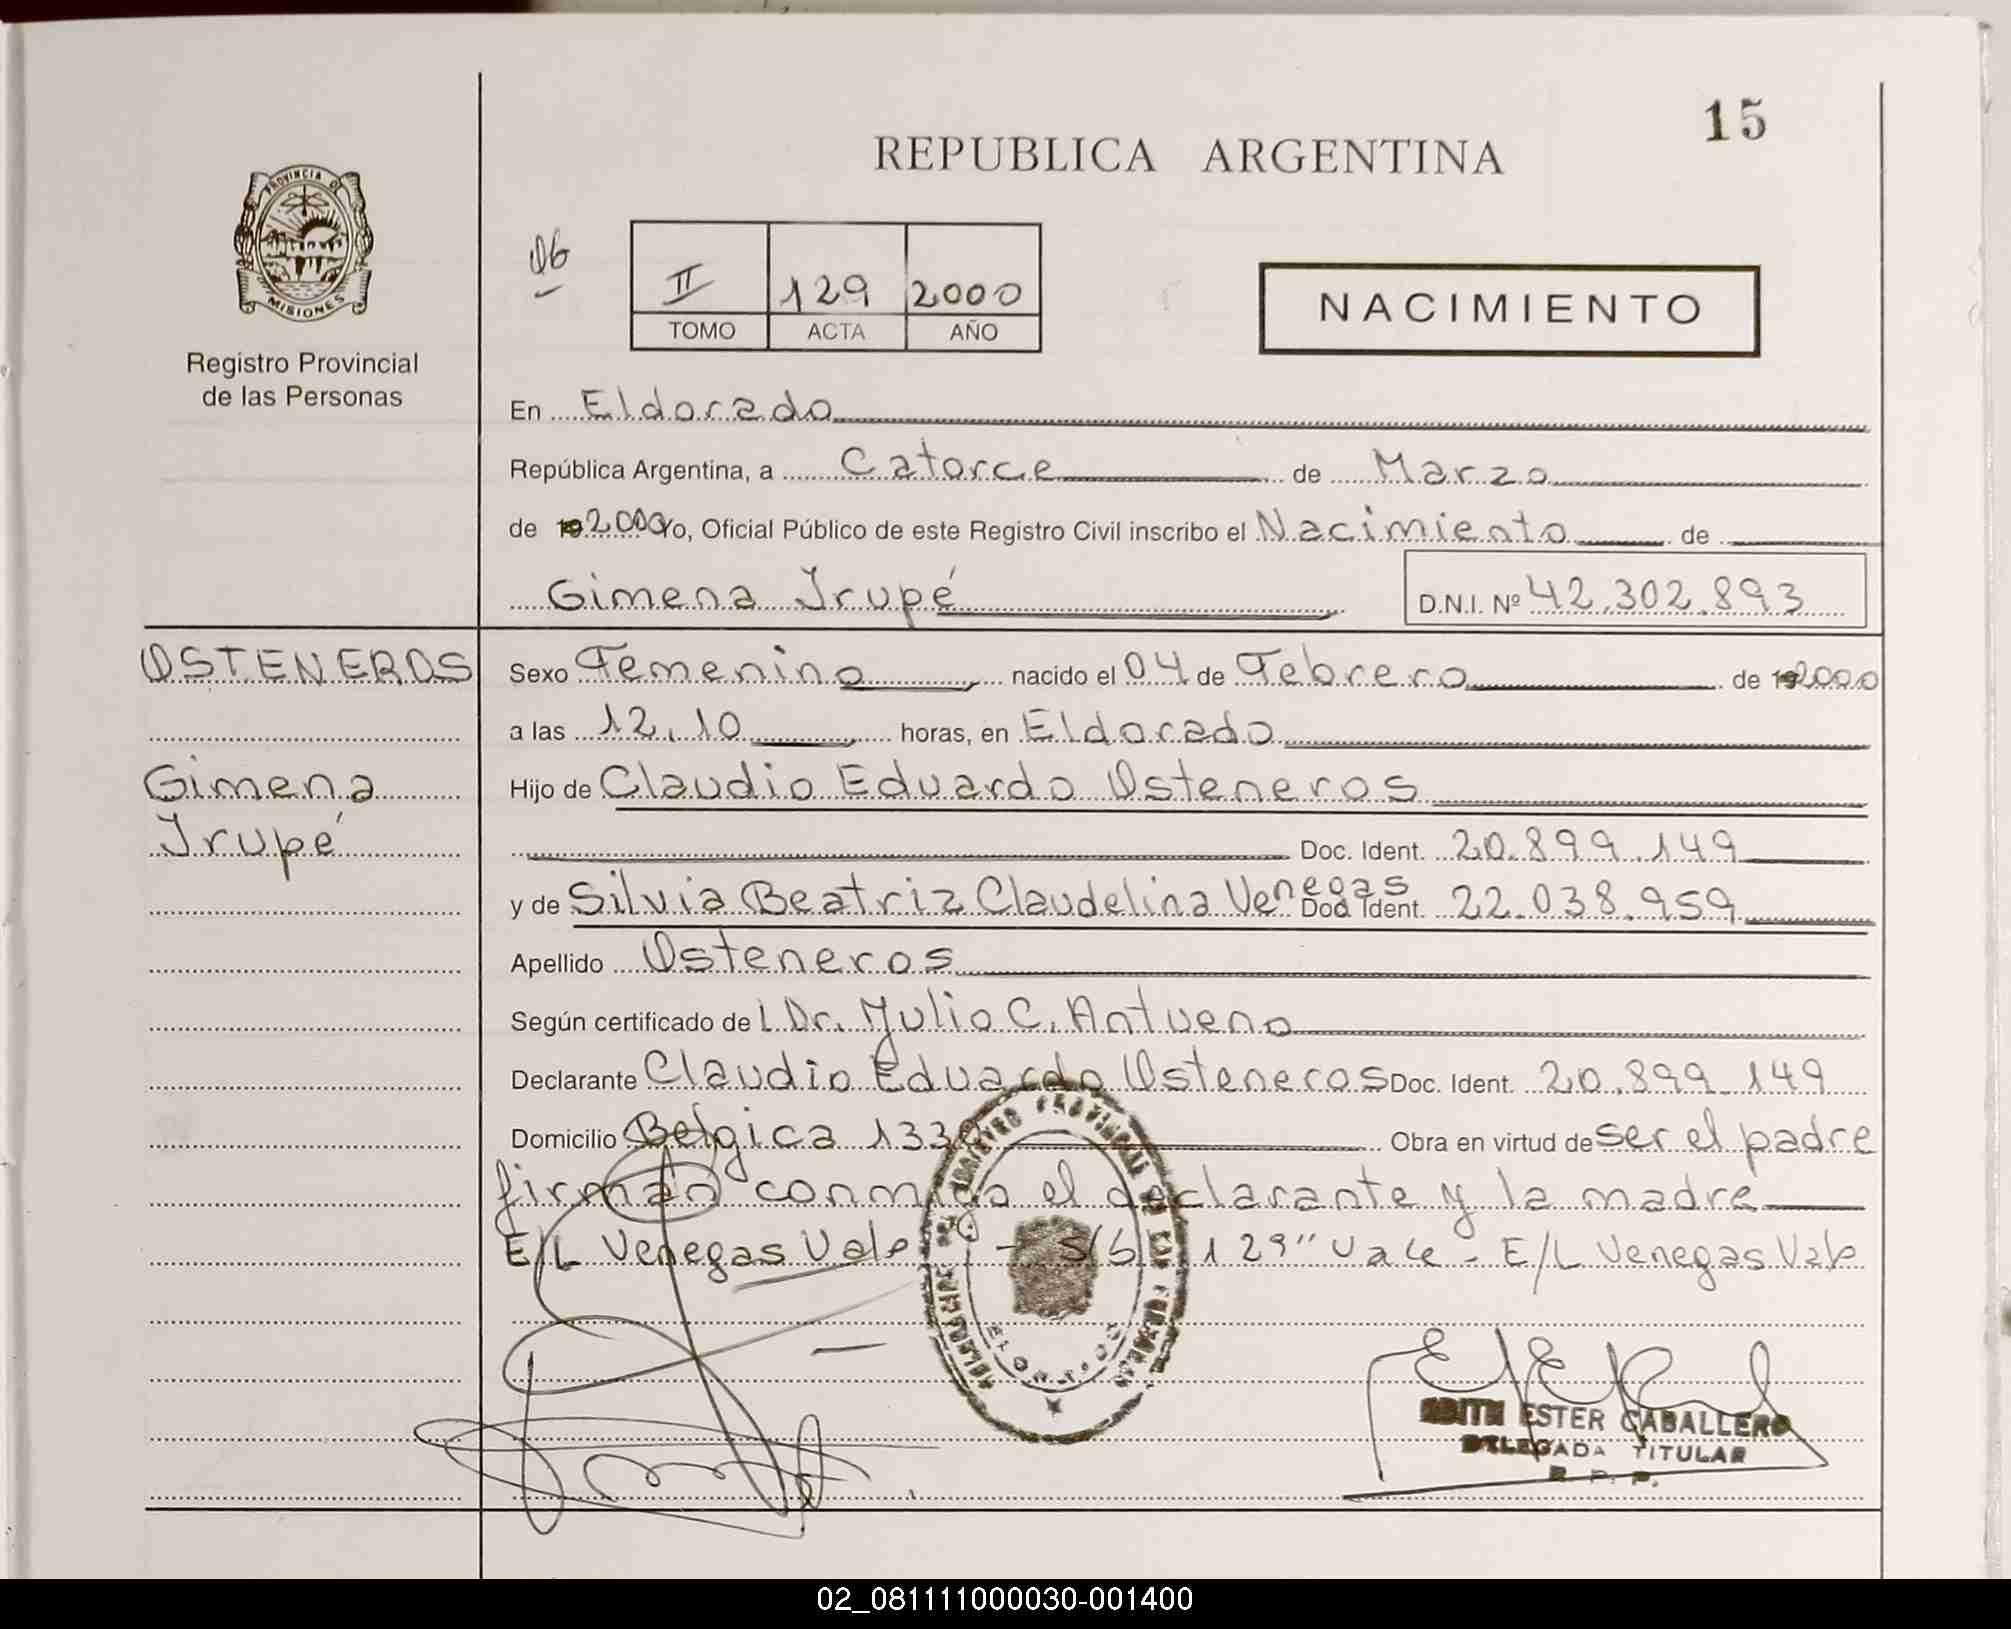 15
REPUBLICA ARGENTINA
PROVINCIA DE
MISIONES
Registro Provincial
de las Personas
06
II 129 2000
TOMO ACTA AÑO
NACIMIENTO
En Eldorado
República Argentina, a Catorce de Marzo
de 192000 Yo, Oficial Público de este Registro Civil inscribo el Nacimiento de
Gimena Irupé D.N.I. Nº 42.302.893
OSTENEROS
Gimena
Irupé
Sexo Femenino nacido el 04 de Febrero de 192000
a las 12,10 horas, en Eldorado
Hijo de Claudio Eduardo Osteneros
Doc. Ident. 20.899.149
y de Silvia Beatriz Claudelina Venegas Doc. Ident. 22.038.959
Apellido Osteneros
Según certificado de l Dr. Julio C. Antueno
Declarante Claudio Eduardo Osteneros Doc. Ident. 20.899.149
Domicilio Belgica 1330 Obra en virtud de ser el padre
firman conmigo el declarante y la madre
E/L Venegas Vale - S/b 129" Vale - E/L Venegas Vale
EDITH ESTER CABALLERO
DELEGADA TITULAR
R. P. P.
02_081111000030-001400